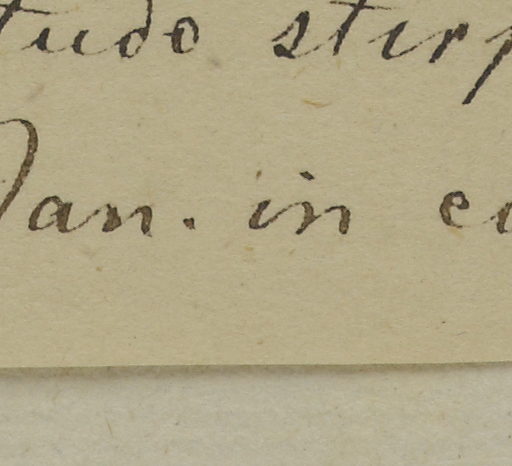 tudo stirp
Jan. in co